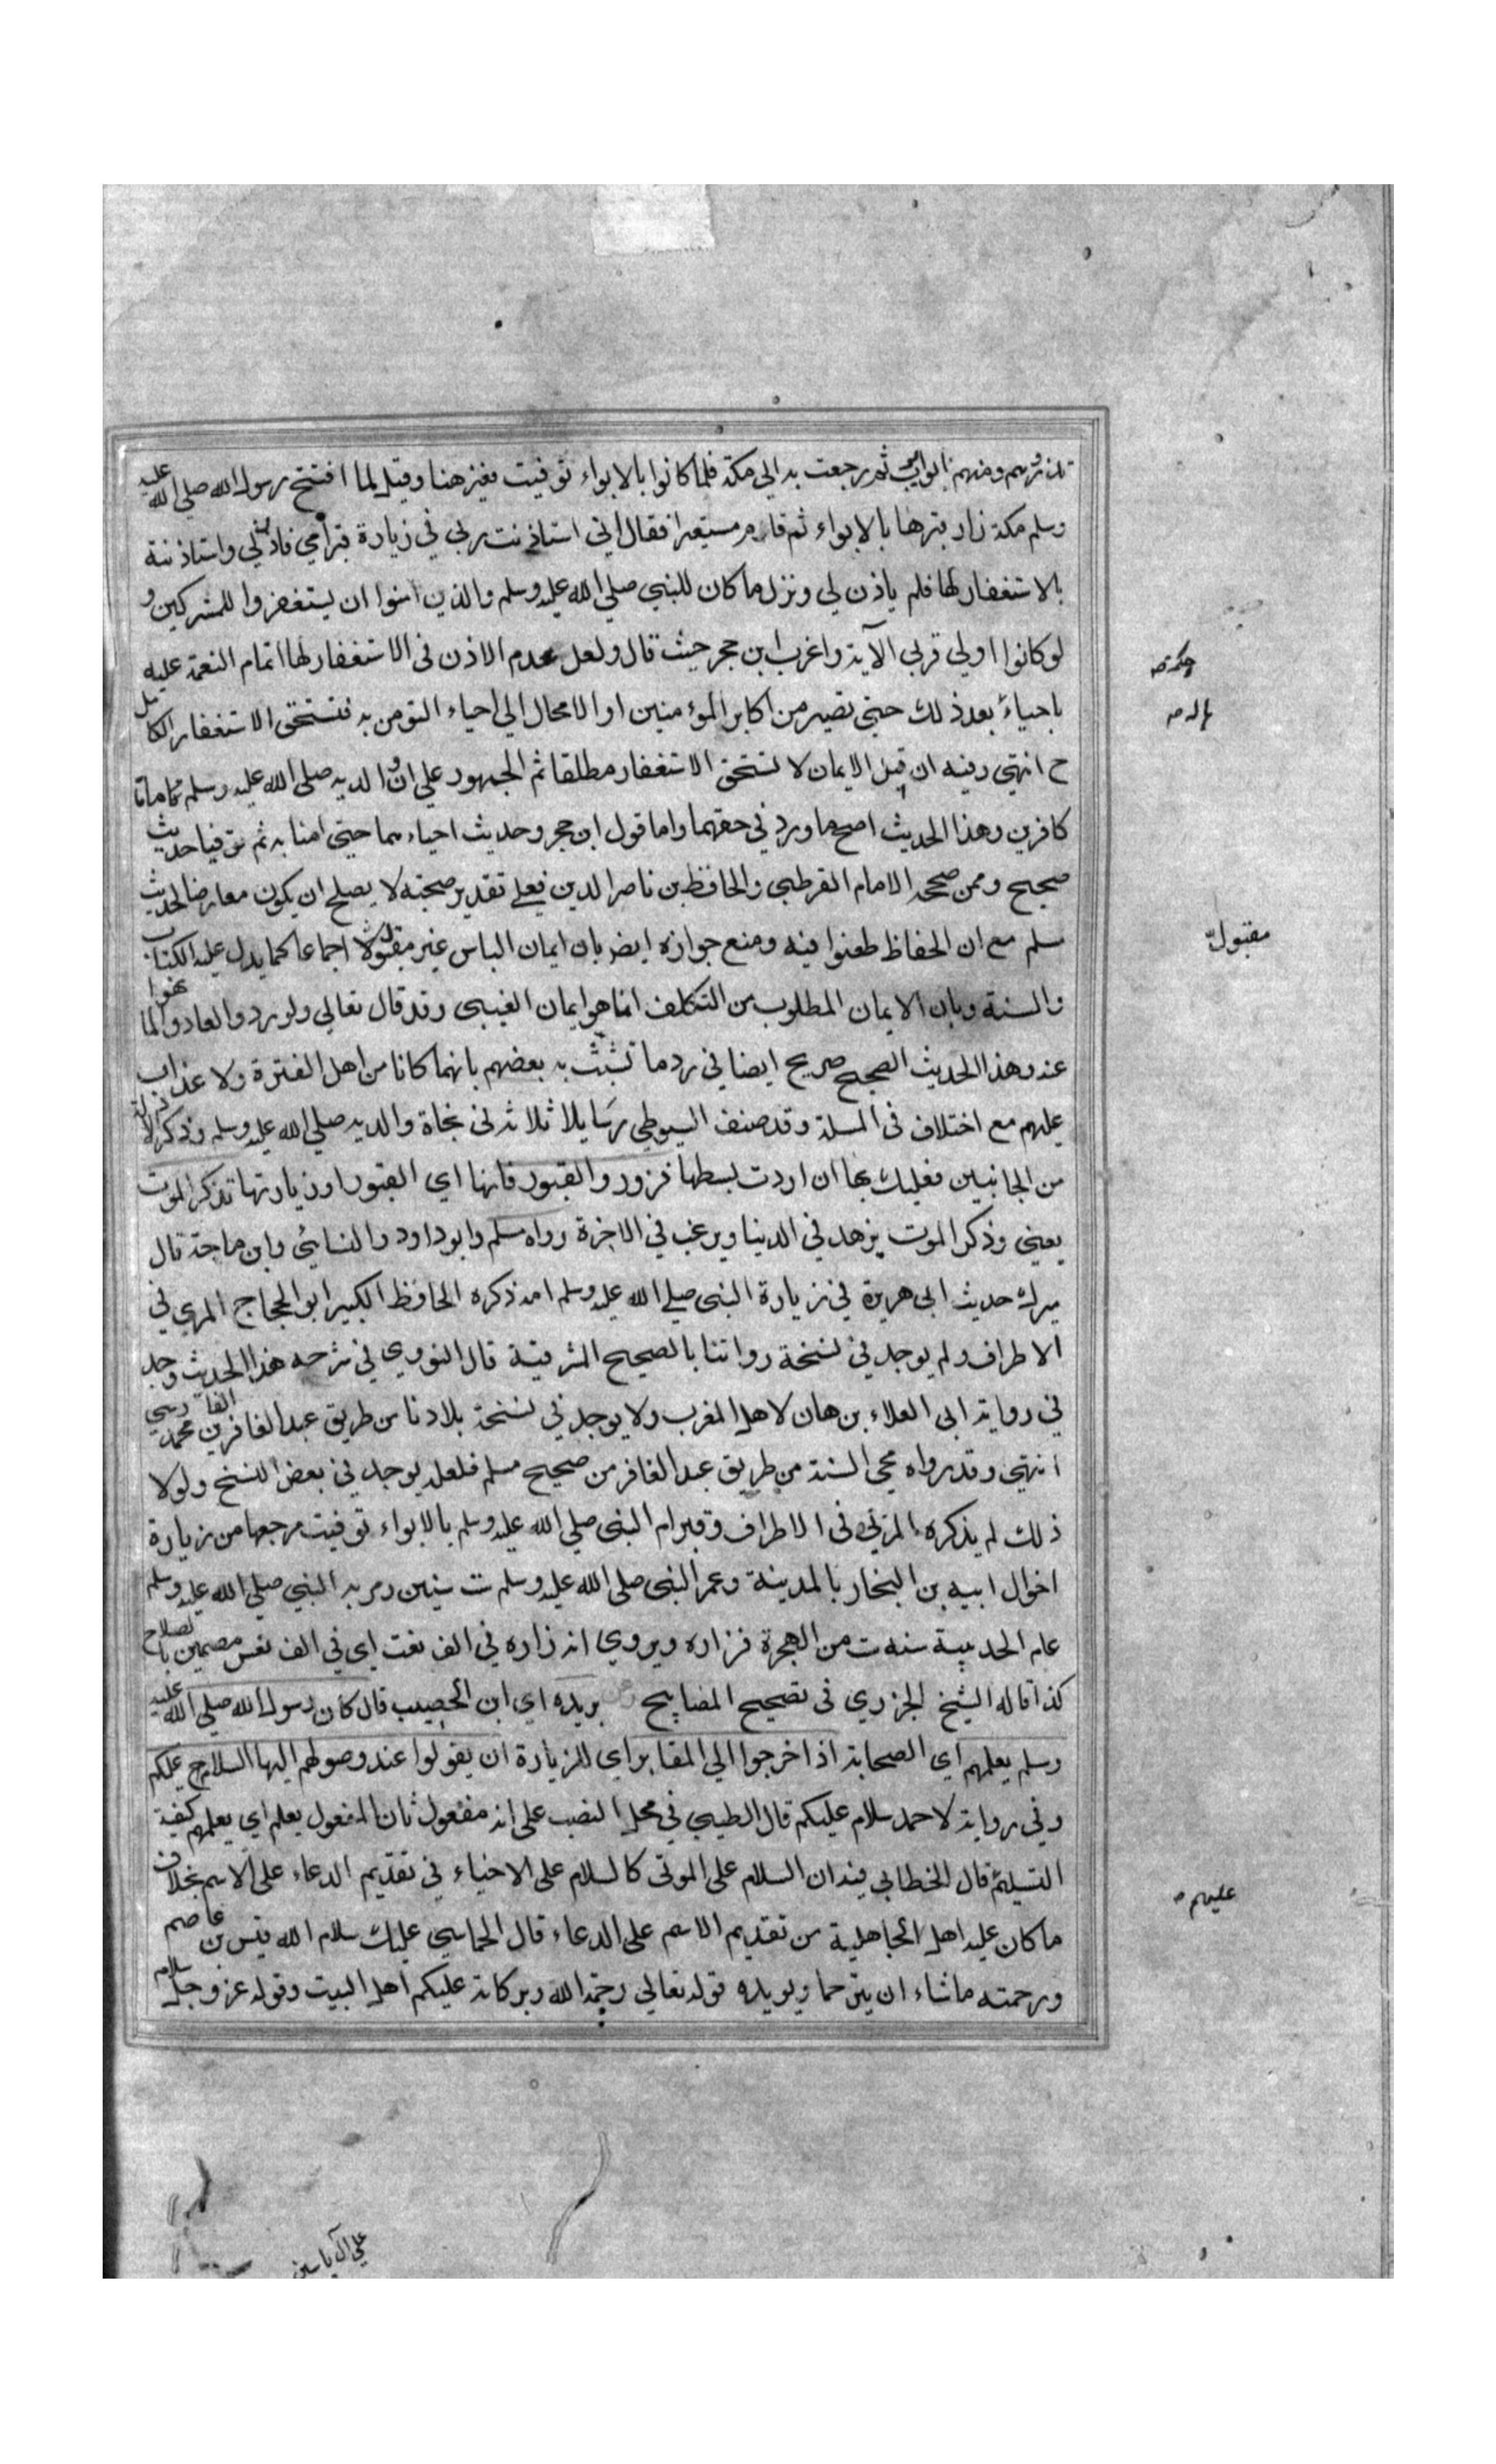 تلذ زهم ومنهم ابو ايوب ثم رجعت به الى مكة فلما كانوا بالابواء توفيت فقبرهنا وقيل لما افتتح رسول الله صلى الله عليه
وسلم مكة زار قبرها بالابواء ثم قام مستعبرا فقال اني استاذنت ربي في زيارة قبر امي فاذن لي واستاذنته
بالاستغفار لها فلم ياذن لي ونزل ما كان للنبي صلى الله عليه وسلم والذين امنوا ان يستغفروا للمشركين و
لو كانوا اولي قربى الآية واغرب ابن حجر حيث قال ولعل عدم الاذن في الاستغفار لها اتمام النعمة عليه
باحياء بعد ذلك حتى تصير من اكابر المؤمنين او الامحال الى احياء التومن به فتستحق الاستغفار الكامل
ح انتهى وفيه ان قبل الايمان لا تستحق الاستغفار مطلقا ثم الجمهور على ان والديه صلى الله عليه وسلم ماتا
كافرين وهذا الحديث اصح ما ورد في حقهما واما قول ابن حجر وحديث احياء هما حتى امنا به ثم توفيا حديث
صحيح وممن صححه الامام القرطبي والحافظ بن ناصر الدين فعلى تقدير صحته لا يصلح ان يكون معارضا لحديث
مسلم مع ان الحفاظ طعنوا فيه ومنع جوازه ايضا بان ايمان الياس غير مقبول اجماعا كما يدل عليه الكتاب
والسنة وبان الايمان المطلوب من التكلف انما هو ايمان الغيبي وقد قال تعالى ولو ردوا لعادوا لما نهوا
عنه وهذا الحديث الصحيح صريح ايضا في رد ما تشبث به بعضهم بانهما كانا من اهل الفترة ولا عذاب
عليهم مع اختلاف في المسلة وقد صنف السيوطي رسايلا ثلاثة في نجاة والديه صلى الله عليه وسلم وذكر الادلة
من الجانبين فعليك بها ان اردت بسطها فزوروا القبور فانها اي القبور او زيارتها تذكر الموت
يعني وذكر الموت يزهد في الدنيا ويرغب في الاخرة رواه مسلم وابو داود والنسائي وابن ماجة قال
ميرك حديث ابي هريرة في زيارة النبي صلى الله عليه وسلم امه ذكره الحافظ الكبير ابو الحجاج المزي في
الاطراف ولم يوجد في نسخة رواتنا بالصحيح المشرقية قال النووي في شرحه هذا الحديث وجد
في رواية ابي العلاء بن هان لاهل المغرب ولا يوجد في نسخة بلادنا من طريق عبد الغافر بن محمد الفارسي
انتهى وقد رواه محي السنة من طريق عبد الغافر من صحيح مسلم فلعله يوجد في بعض النسخ ولولا
ذلك لم يذكره المزي في الاطراف وقبر ام النبي صلى الله عليه وسلم بالابواء توفيت مرجعها من زيارة
اخوال ابيه بن النجار بالمدينة وعمر النبي صلى الله عليه وسلم ست سنين ومر به النبي صلى الله عليه وسلم
عام الحديبية سنه ست من الهجرة فزاره ويروي انه زاره في الف نفت اي في الف نفس مصممين بالصلاح
كذا قاله الشيخ الجزري في تصحيح المصابيح بريده اي ابن الحصيب قال كان رسول الله صلى الله عليه
وسلم يعلمهم اي الصحابة اذا خرجوا الى المقابر اي للزيارة ان يقولوا عند وصولهم اليها السلام عليكم
وفي رواية لاحمد سلام عليكم قال الطيبي في محل النصب على انه مفعول ثان المفعول يعلم اي يعلمهم كيفية
التسليم قال الخطابي فيه ان السلام على الموتى كالسلام على الاحياء في تقديم الدعاء على الاسم بخلاف
ما كان عليه اهل الجاهلية من تقديم الاسم على الدعاء قال الحماسي عليك سلام الله قيس بن عاصم
ورحمته ما شاء ان يترحما ويويده قوله تعالى رحمة الله وبركاته عليكم اهل البيت وقوله عز وجل سلام
على آل ياسين
حكمة
مقبول
عليهم